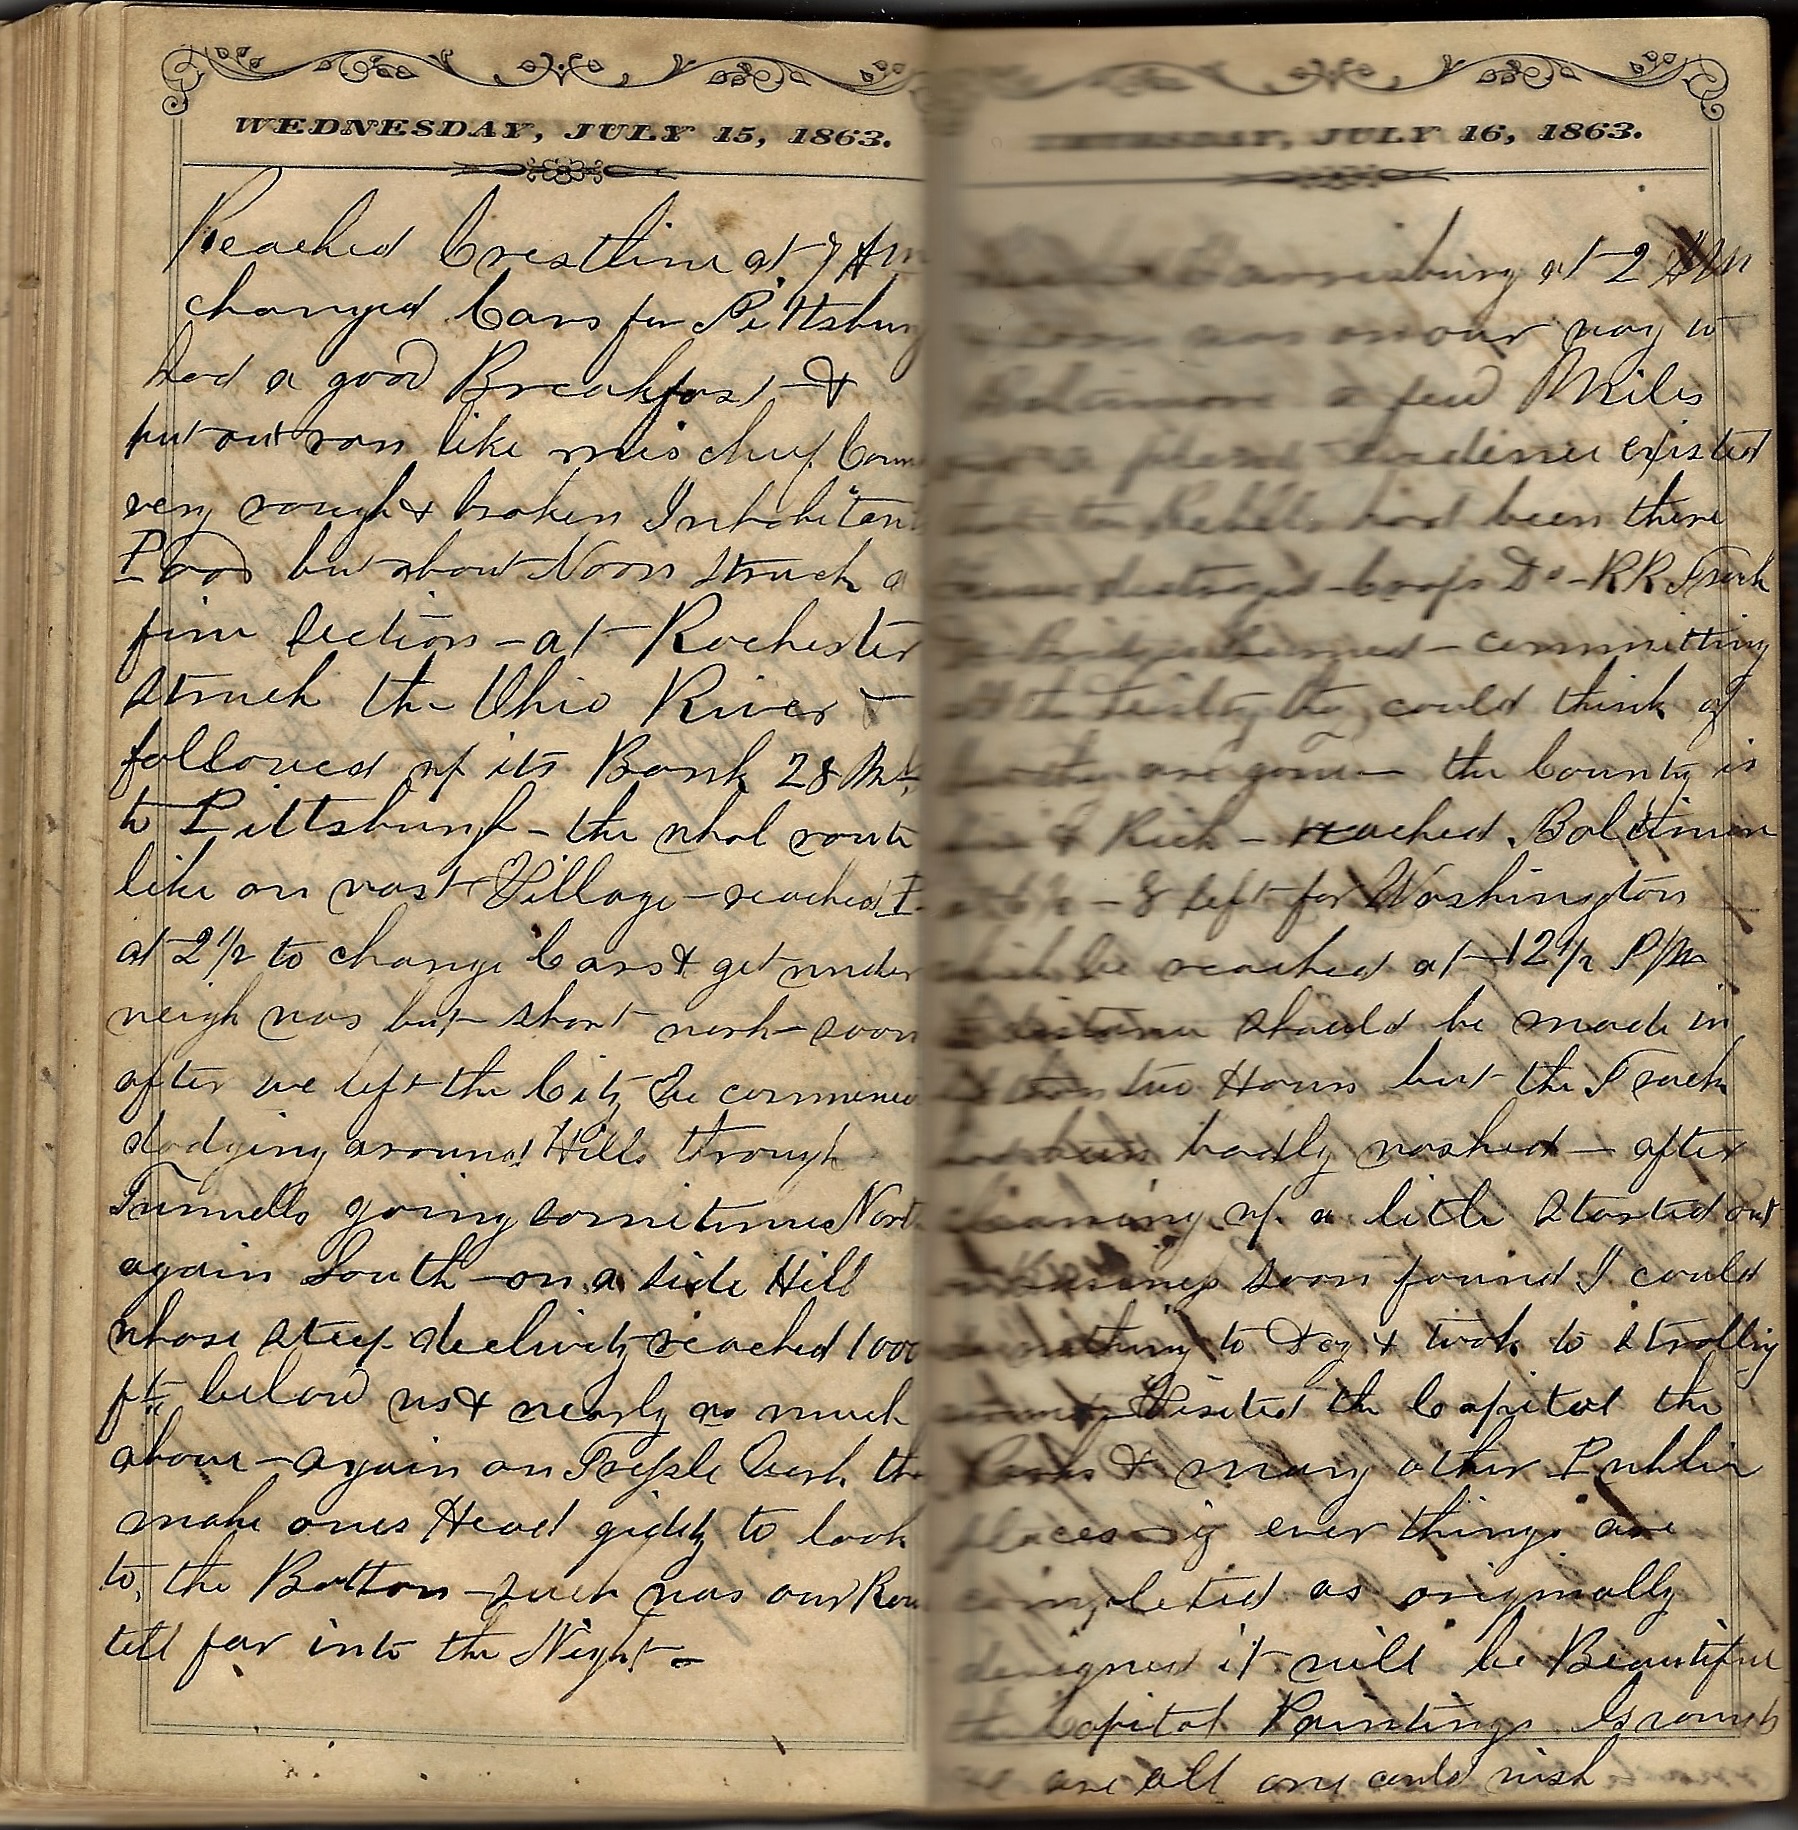 WEDNESDAY, JULY 15, 1863.
Reached Crestline at 7 Am
changed Cars for Pittsburg
had a good Breakfast &
put out ran like mischief Coun
very rough & broken Inhabitan
Poor but about Noon struck a
fine section - at Rochester
struck the Ohio River &
followed up its Bank 28 Mls
to Pittsburgh - the whol route
like on vast Village - reached P.
at 2 1/2 to change Cars & get under
weigh was but short work - soon
after we left the City We commenc
dodging around Hills through
Tunnells going sometimes Nort
again South - on a side Hill
whose steep declivity reached 1000
ft below us & nearly as much
above - again on Tressle Work th
make ones Head giddy to look
to, the Bottom - such was our Rou
till far into the Night -
THURSDAY, JULY 16, 1863.
Harrisburg at 2 Am
soon was on our way to
Baltimore a few Miles
evidence existed
that the Rebells had been there
destroyed Crops Do - RR Track
Bridges burned - committing
all the they could think of
are gone - the County is
& Rich - reached Baltimore
at 6 1/2 - 8 left for Washington
which we reached at 12 1/2 P/M
distance should be made in
than two Hours but the Track
had been badly washed - after
cleaning up a little started out
on business soon found I could
do nothing to Day & took to strolling
around Visited the Capitol the
Parks & many other Public
places - if ever things are
completed as originally
designed it will be Beautiful
the Capitol Paintings Grounds
are all one could wish